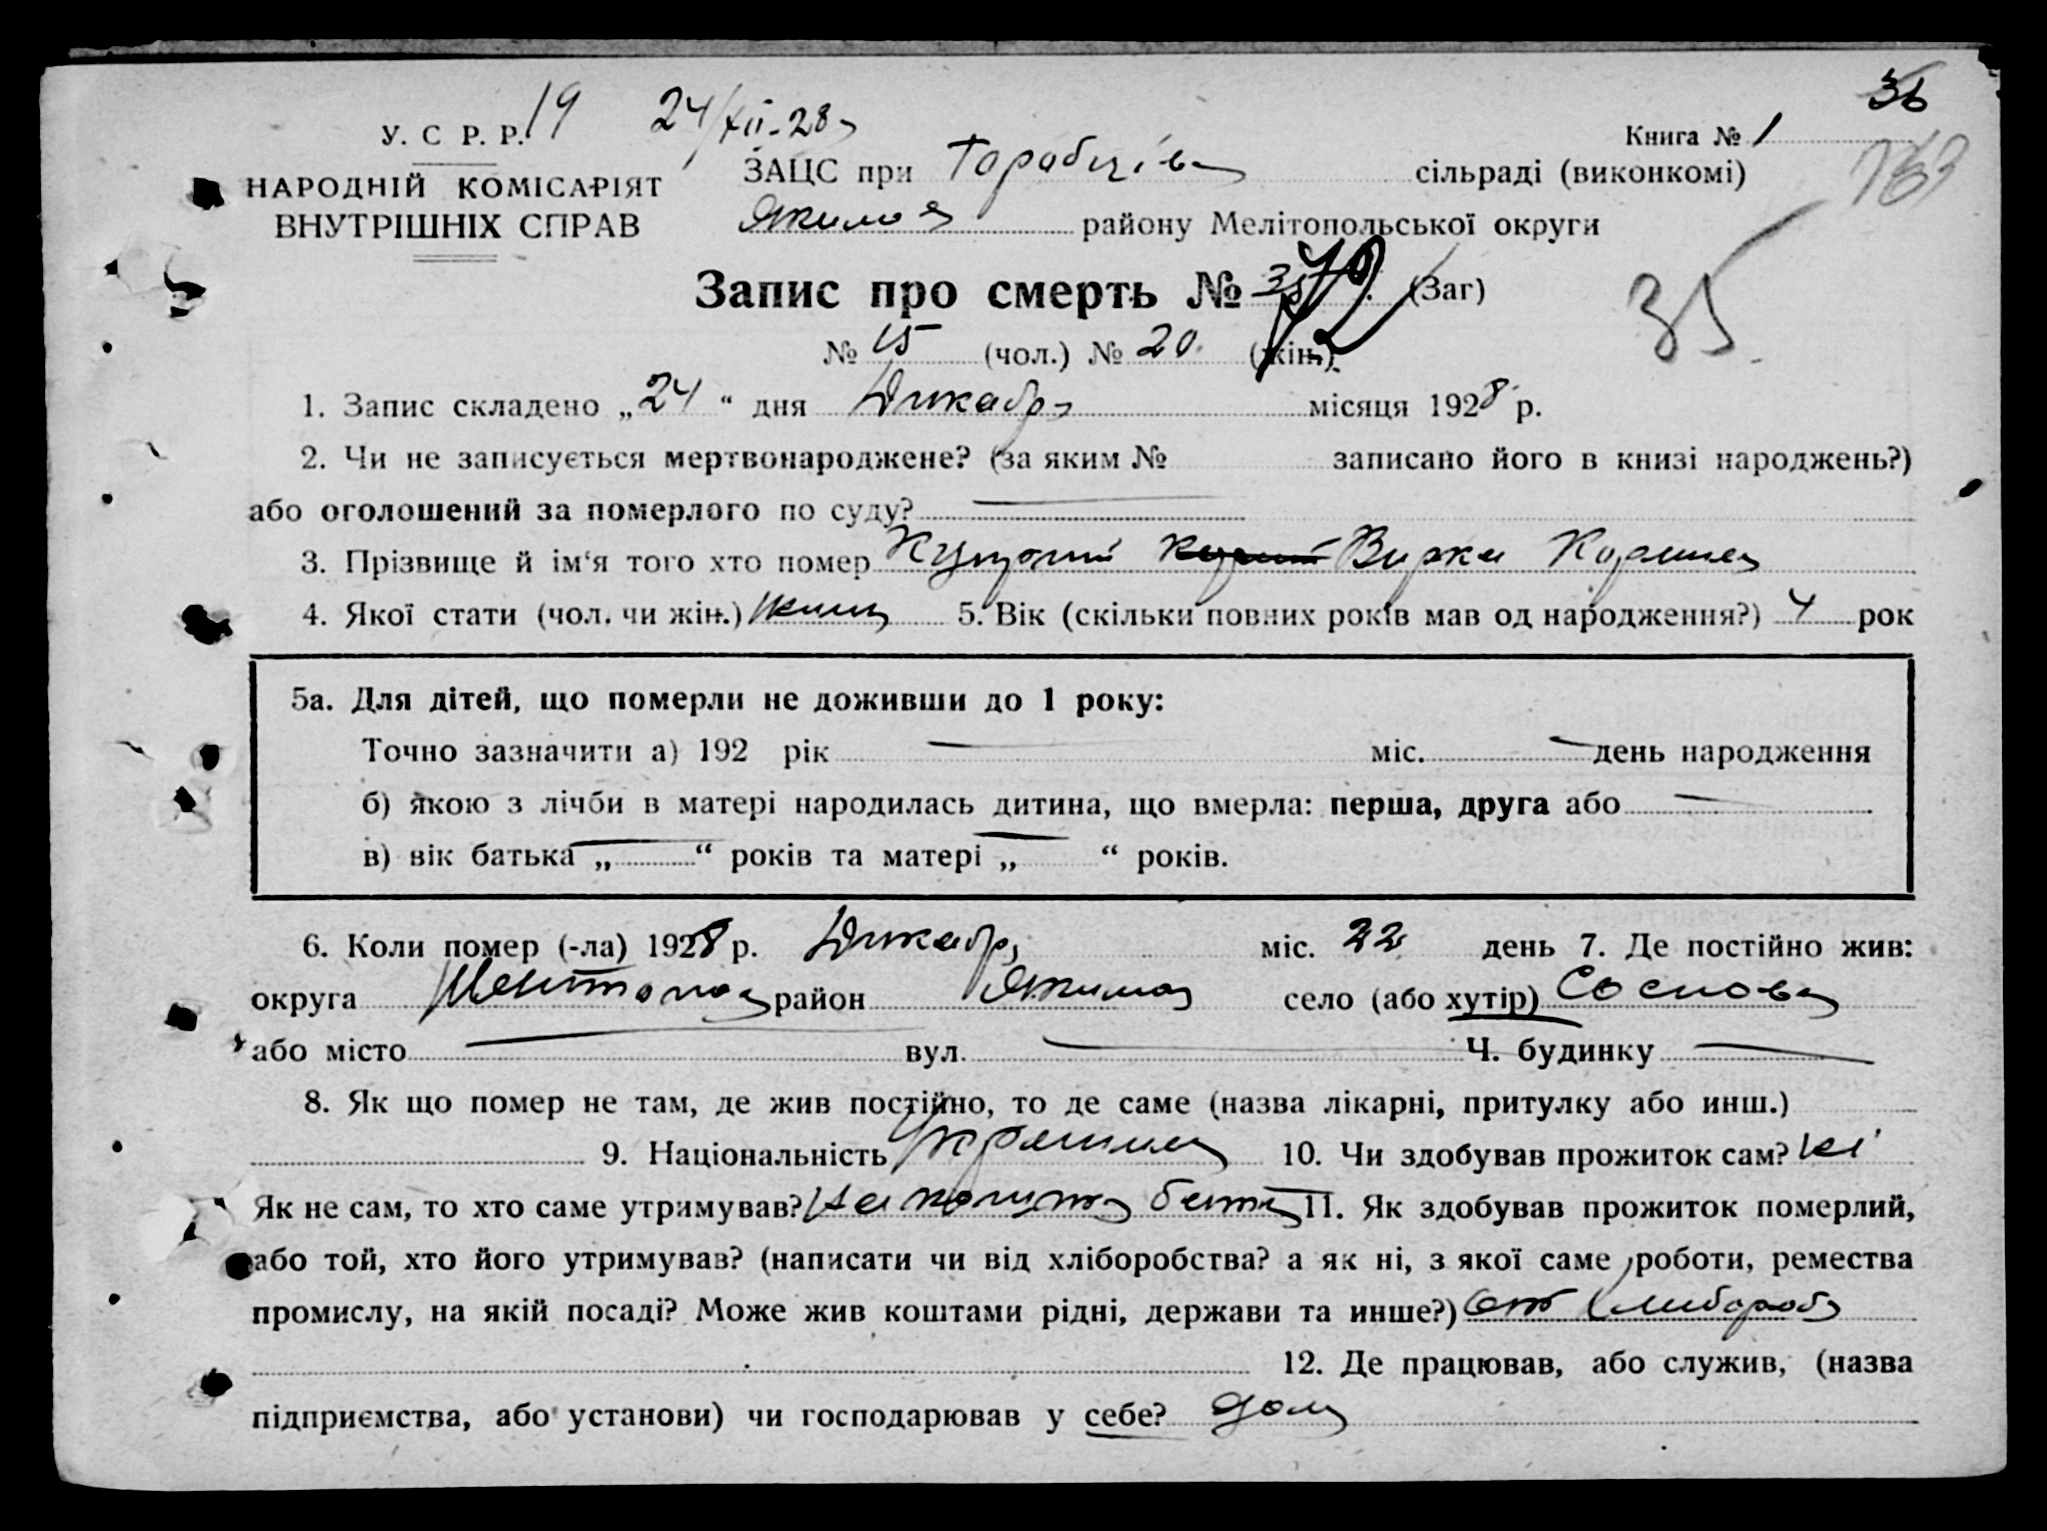 36
У. С. Р. Р. 19 24/XII-28
Книга № 1
ЗАЦС при сільраді (виконкомі)
НАРОДНІЙ КОМІСАРІЯТ
ВНУТРІШНІХ СПРАВ
Якимов району Мелітопольської округи
Запис про смерть № 35 72 (Заг)
35
№ 15 (чол.) № 20 (жін.)
1. Запис складено „24“ дня Дикабр місяця 1928 р.
2. Чи не записується мертвонароджене? (за яким № записано його в книзі народжень?)
або оголошений за померлого по суду?
3. Прізвище й ім‘я того хто помер
4. Якої стати (чол. чи жін.) 5. Вік (скільки повних років мав од народження?) 4 рок
5а. Для дітей, що померли не доживши до 1 року:
Точно зазначити а) 192 рік міс. день народження
б) якою з лічби в матері народилась дитина, що вмерла: перша, друга або
в) вік батька „ “ років та матері „ “ років.
6. Коли помер (-ла) 1928 р. Дикабр міс. 22 день 7. Де постійно жив:
округа район Якимов село (або хутір)
або місто вул. Ч. будинку
8. Як що помер не там, де жив постійно, то де саме (назва лікарні, притулку або инш.)
9. Національність 10. Чи здобував прожиток сам? ні
Як не сам, то хто саме утримував? 11. Як здобував прожиток померлий,
або той, хто його утримував? (написати чи від хліборобства? а як ні, з якої саме роботи, ремества
промислу, на якій посаді? Може жив коштами рідні, держави та инше?) от
12. Де працював, або служив, (назва
підприємства, або установи) чи господарював у себе?